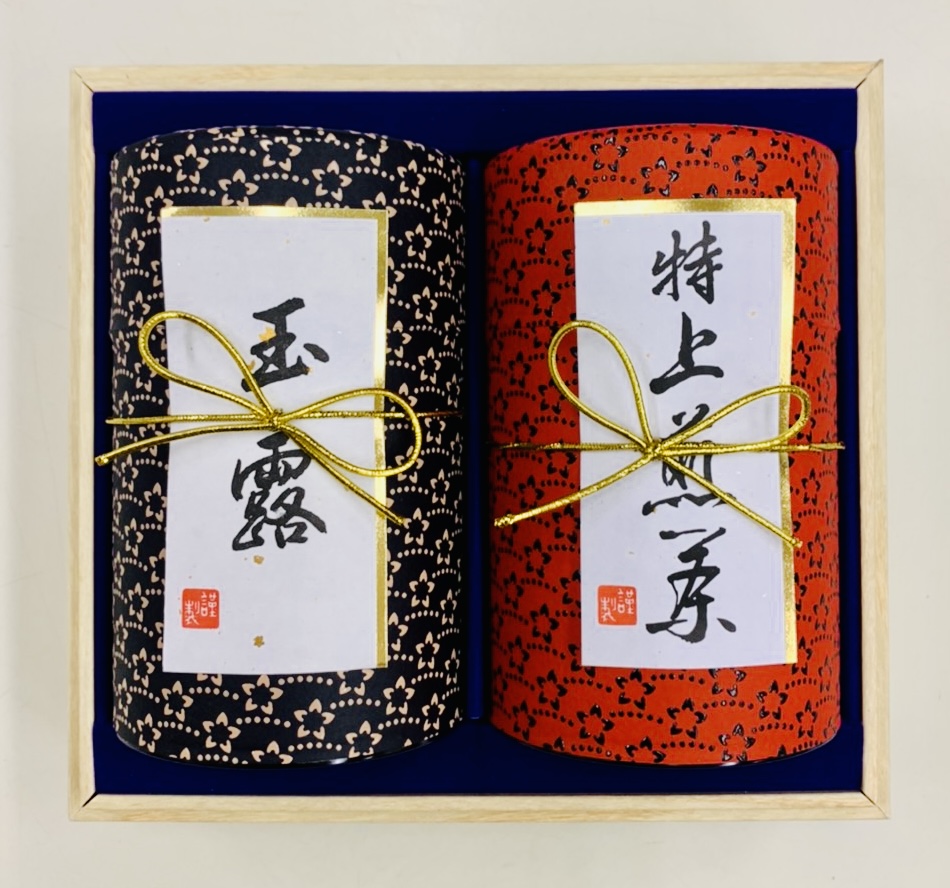 玉露
謹製
特上煎茶
謹製